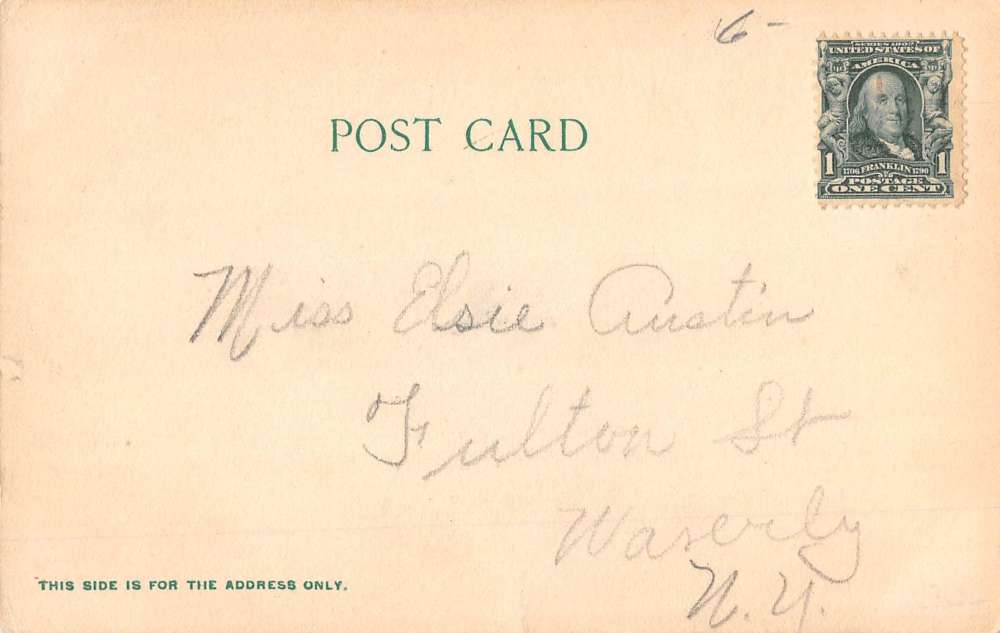 6-
SERIES 1902
UNITED STATES OF
AMERICA
1 1
1706 FRANKLIN 1790
POSTAGE
ONE CENT
POST CARD
Miss Elsie Austin
Fulton St
Waverly
N. Y.
THIS SIDE IS FOR THE ADDRESS ONLY.